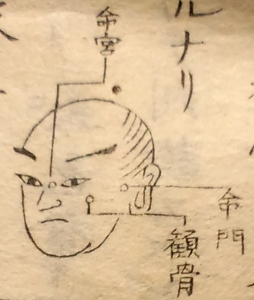 ルナリ
命宮
命門
顴骨